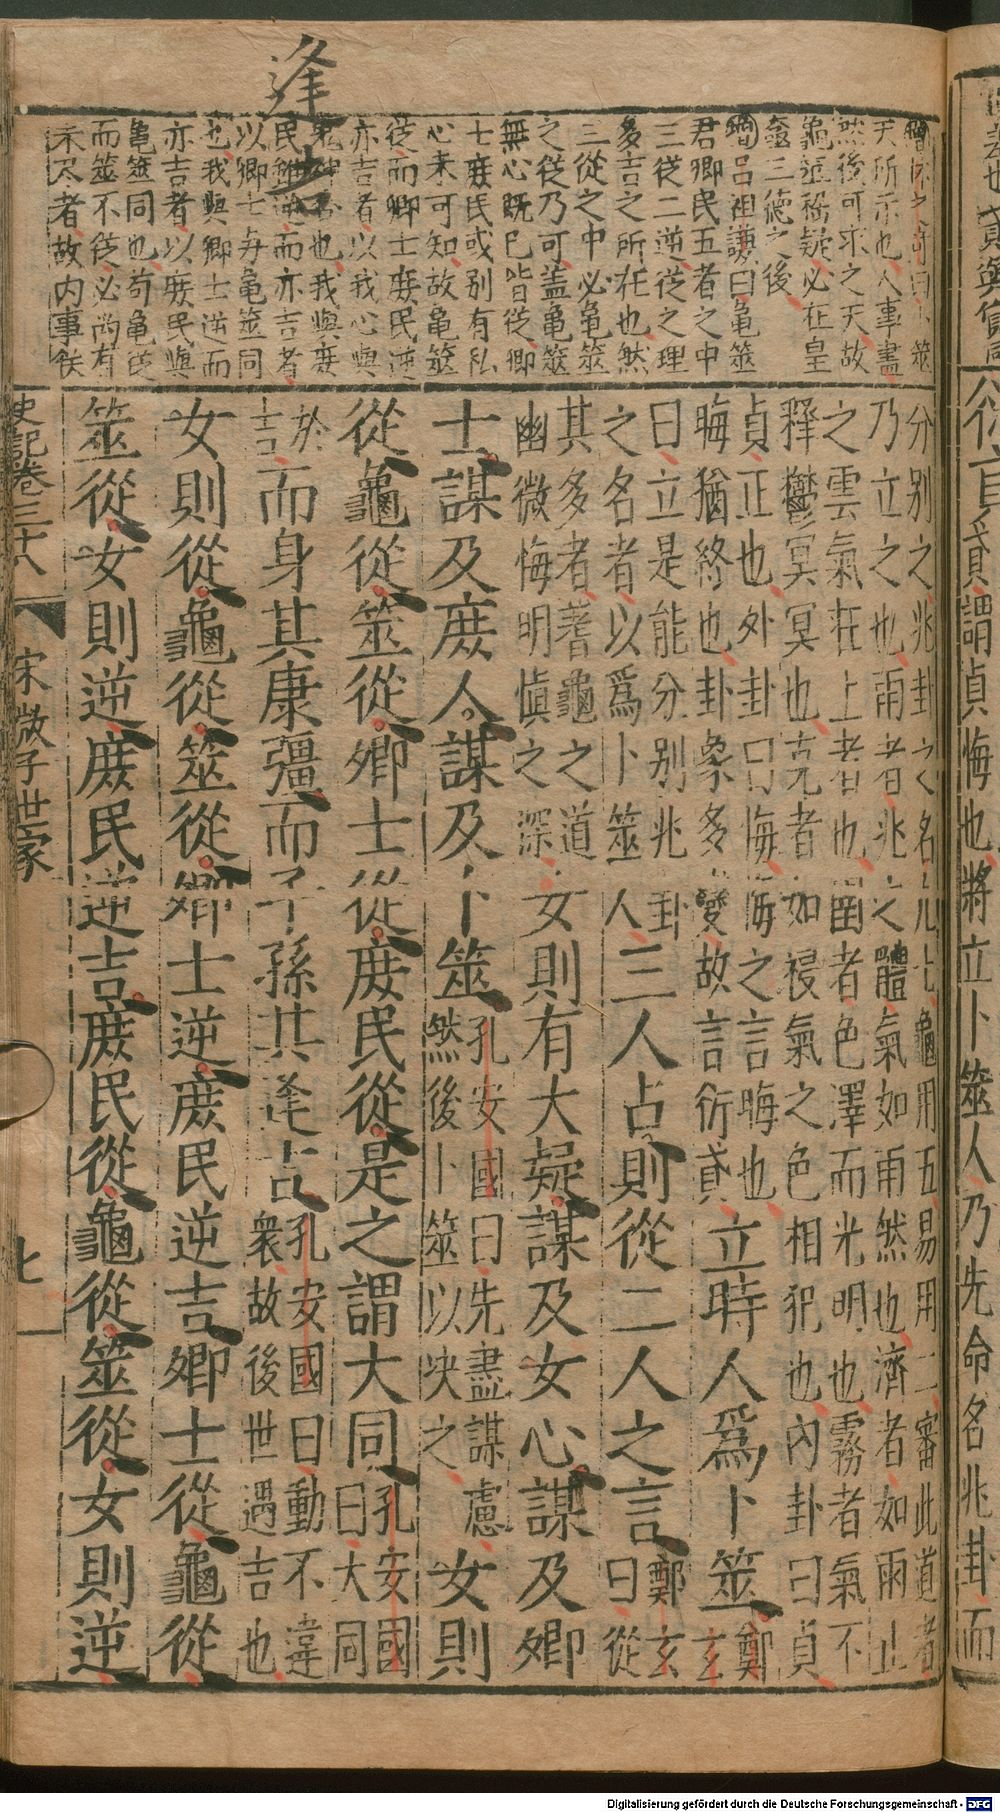 逢
天所示也人事盡
然後可求之天故
龜筮稽疑必在皇
極三德之後
呂祖謙曰龜筮
君卿民五者之中
三從二逆從之理
多吉之所在也然
三從之中必龜筮
之從乃可蓋龜筮
無心既已皆從卿
士庶民或別有私
心未可知故龜筮
從而卿士庶民逆
亦吉者以我心與
也我與庶
民雖逆而亦吉者
以卿士與龜筮同
也我與卿士逆而
亦吉者以庶民與
龜筮同也苟龜從
而筮不從必尚有
未尽者故内事
分別之兆卦之名凡七龜用五易用二審此道者
乃立之也雨者兆之體氣如雨然也濟者如雨止
之雲氣在上者也圛者色澤而光明也霧者氣不
釋鬱冥冥也克者如祲氣之色相犯也内卦曰貞
貞正也外卦曰悔悔之言晦也
晦猶終也卦象多變故言衍貣
立時人爲卜筮
鄭玄
曰立是能分別兆卦
之名者以爲卜筮人
三人占則從二人之言
鄭玄
曰從
其多者蓍龜之道
幽微悔明慎之深
女則有大疑謀及女心謀及卿
士謀及庶人謀及卜筮
孔安國曰先盡謀慮
然後卜筮以決之
女則
從龜從筮從卿士從庶民從是之謂大同
孔安國
曰大同
於
吉
而身其康彊而子孫其逢吉
孔安國曰動不違
衆故後世遇吉也
女則從龜從筮從卿士逆庶民逆吉卿士從龜從
筮從女則逆庶民逆吉庶民從龜從筮從女則逆
史記卷三十八
宋微子世家
七
衍貣謂貞悔也將立卜筮人乃先命名兆卦而
Digitalisierung gefördert durch die Deutsche Forschungsgemeinschaft - DFG